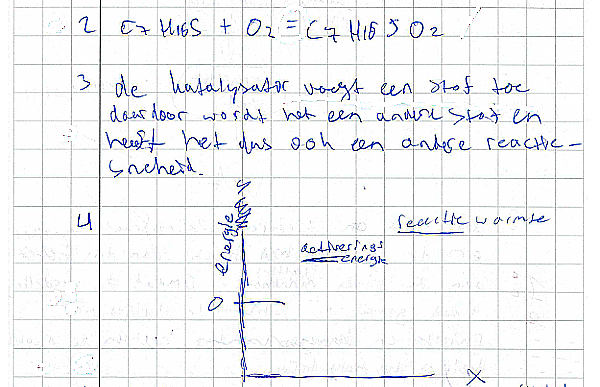 2 C7H16S + O2 = C7H16SO2
3 de katalysator voegt een stof toe
daardoor wordt het een andere stof en
heeft het dus ook een andere reactie-
snelheid.
4 energie reactie warmte
activerings
energie
0
x